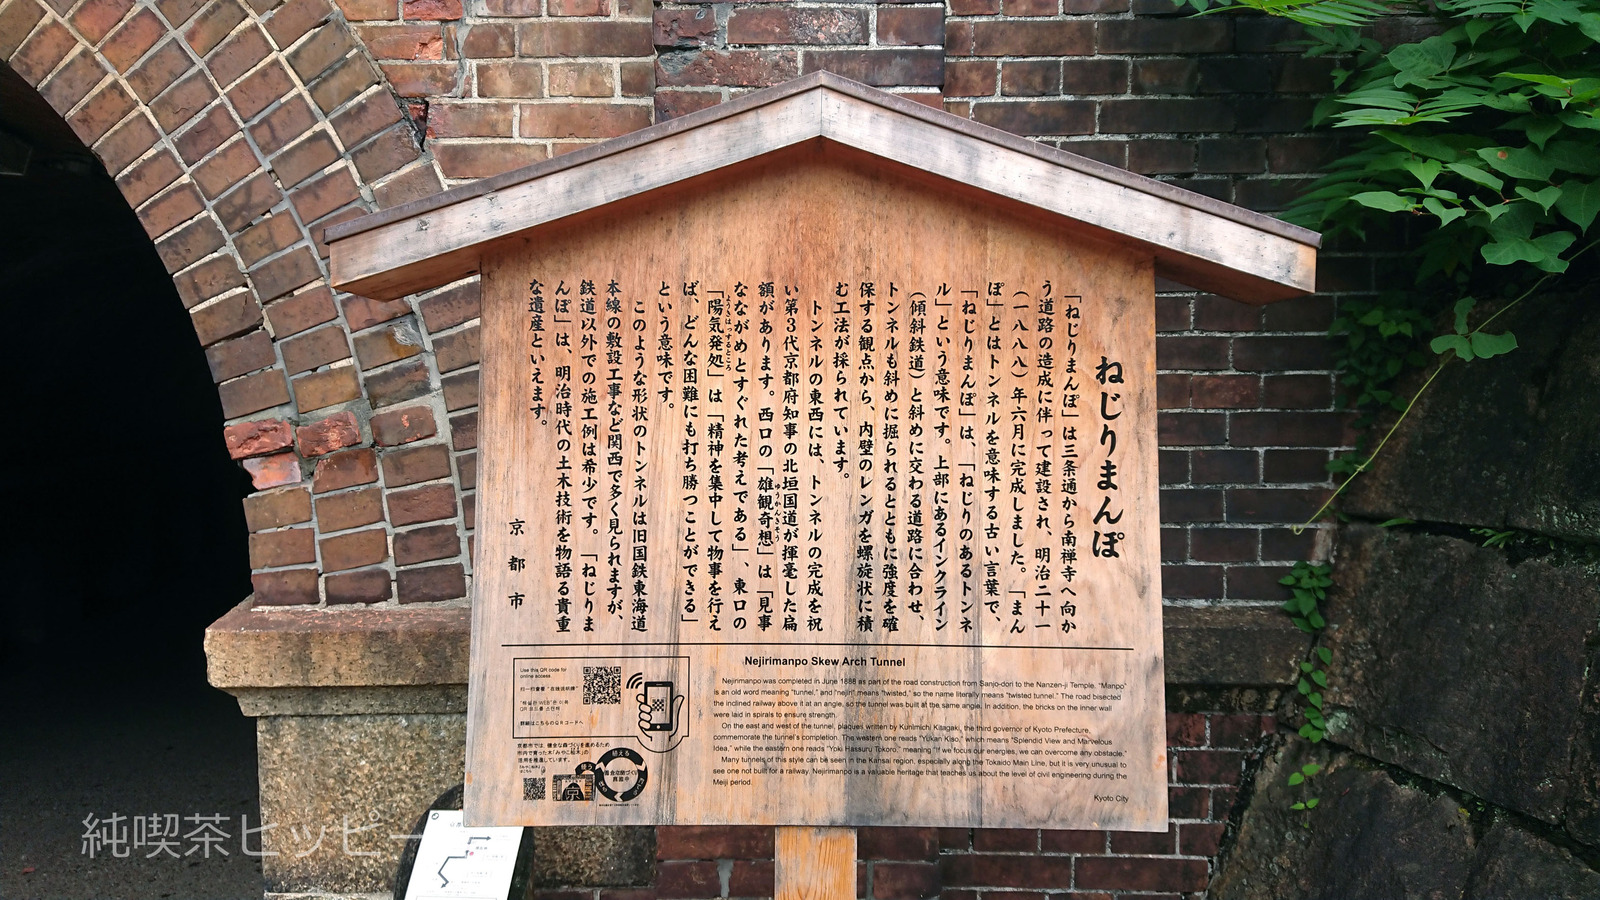 ねじりまんぽ
「ねじりまんぽ」は三条通から南禅寺へ向か
う道路の造成に伴って建設され、明治二十一
（一八八八）年六月に完成しました。「まん
ぽ」とはトンネルを意味する古い言葉で、
「ねじりまんぽ」は、「ねじりのあるトンネ
ル」という意味です。上部にあるインクライン
（傾斜鉄道）と斜めに交わる道路に合わせ、
トンネルも斜めに掘られるとともに強度を確
保する観点から、内壁のレンガを螺旋状に積
む工法が採られています。
トンネルの東西には、トンネルの完成を祝
い第３代京都府知事の北垣国道が揮毫した扁
額があります。西口の「雄観奇想」は「見事
ゆうかんきそう
なながめとすぐれた考えである」、東口の
「陽気発処」は「精神を集中して物事を行え
ようきはっするところ
ば、どんな困難にも打ち勝つことができる」
という意味です。
このような形状のトンネルは旧国鉄東海道
本線の敷設工事など関西で多く見られますが、
鉄道以外での施工例は希少です。「ねじりま
んぽ」は、明治時代の土木技術を物語る貴重
な遺産といえます。
京都市
Use this QR code for
online access.
QR 코드를 스캔해
詳細はこちらのQRコードへ
京都市では、健全な森づくりを進めるため、
市内で育った木「みやこ杣木」の
活用を推進しています。
植える
使う
京
Nejirimanpo Skew Arch Tunnel
Nejirimanpo was completed in June 1888 as part of the road construction from Sanjo-dori to the Nanzen-ji Temple. "Manpo"
is an old word meaning "tunnel," and "nejiri" means "twisted," so the name literally means "twisted tunnel." The road bisected
the inclined railway above it at an angle, so the tunnel was built at the same angle. In addition, the bricks on the inner wall
were laid in spirals to ensure strength.
On the east and west of the tunnel, plaques written by Kunimichi Kitagaki, the third governor of Kyoto Prefecture,
commemorate the tunnel's completion. The western one reads "Yukan Kiso," which means "Splendid View and Marvelous
Idea," while the eastern one reads "Yoki Hassuru Tokoro," meaning "If we focus our energies, we can overcome any obstacle."
Many tunnels of this style can be seen in the Kansai region, especially along the Tokaido Main Line, but it is very unusual to
see one not built for a railway. Nejirimanpo is a valuable heritage that teaches us about the level of civil engineering during the
Meiji period.
Kyoto City
純喫茶ヒッピー